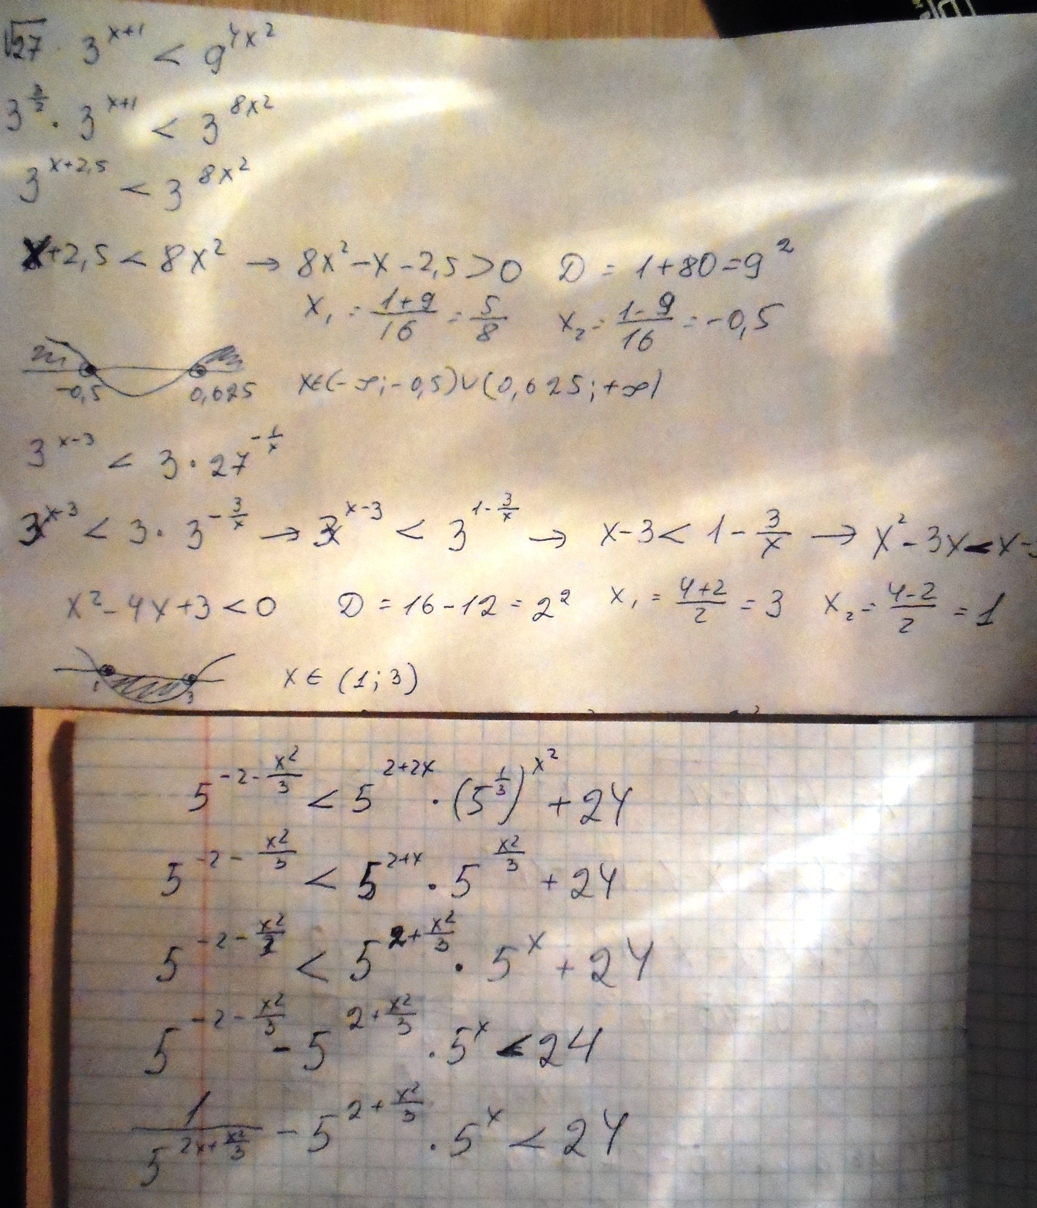 √27 · 3^(x+1) < 9^(4x²)
3^(3/2) · 3^(x+1) < 3^(8x²)
3^(x+2,5) < 3^(8x²)
x+2,5 < 8x² → 8x²-x-2,5>0 D = 1+80=9²
x₁ = (1+9)/16 = 5/8 x₂ = (1-9)/16 = -0,5
-0,5 0,625 x∈(-∞;-0,5)∪(0,625;+∞)
3^(x-3) < 3 · 27^(-1/x)
3^(x-3) < 3 · 3^(-3/x) → 3^(x-3) < 3^(1-3/x) → x-3 < 1 - 3/x → x²-3x<x-3
x²-4x+3<0 D = 16-12 = 2² x₁ = (4+2)/2 = 3 x₂ = (4-2)/2 = 1
1 3 x∈ (1;3)
5^(-2-x²/3) < 5^(2+2x) · (5^(1/3))^(x²) + 24
5^(-2-x²/3) < 5^(2+x) · 5^(x²/3) + 24
5^(-2-x²/3) < 5^(2+x²/3) · 5^x + 24
5^(-2-x²/3) - 5^(2+x²/3) · 5^x < 24
1/5^(2x+x²/3) - 5^(2+x²/3) · 5^x < 24